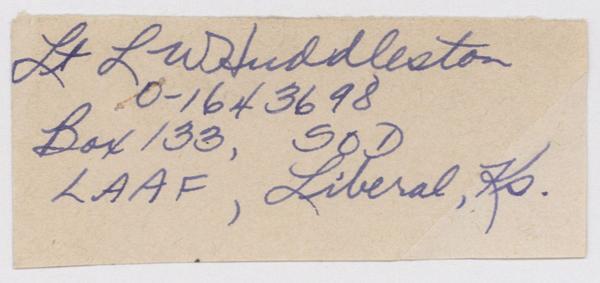 Lt L W Huddleston
O-1643698
Box 133, SOD
LAAF, Liberal, Ks.